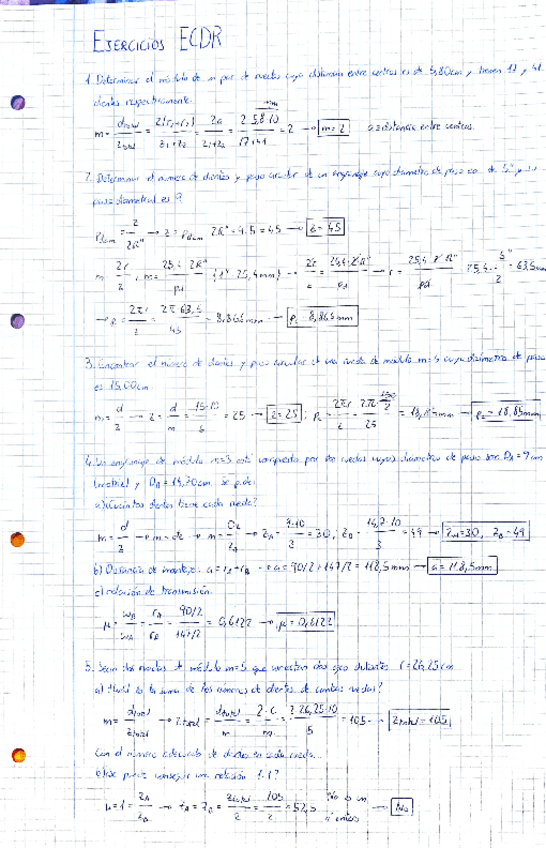 EJERCICIOS ECDR
1. Determinar el módulo de un par de ruedas cuya distancia entre centros es de 5,80cm y tienen 17 y 41
dientes respectivamente.
m = d total / z total = 2(r₁+r₂) / z₁+z₂ = 2a / z₁+z₂ = 2·5,8·10 / 17+41 = 2 → m=2 a≡distancia entre centros.
2. Determinar el número de dientes y paso circular de un engranaje cuyo diámetro de paso es de 5" y
paso diametral es 9
= z / 2R" → z = 2R" = 9·5 = 45 → z = 45
m = 2r / z ; m = (1" 25,4mm) 25,4 · 5" / 2 = 63,5mm
→ p = 2πr / z = 2π 63,5 / 45 = 8,866mm → p = 8,865mm
3. Encontrar el número de dientes y paso circular de una rueda de módulo m=6 cuyo diámetro de paso
es 15,00cm
m = d / z → z = d / m = 15·10 / 6 = 25 → z=25 ; p = 2πr / z = 2π 150/2 / 25 = 18,85mm → p = 18,85mm
4. Un engranaje de módulo m=3 está compuesto por dos ruedas cuyos diámetros de paso son D_A = 9cm
y D_B = 14,70cm. Se pide:
a) ¿Cuántos dientes tiene cada rueda?
m = d / z → z_A = 9·10 / 3 = 30, z_B = 14,7·10 / 3 = 49 → z_A=30, z_B=49
b) Distancia de montaje: a = r_A+r_B → a = 90/2 + 147/2 = 118,5mm → a = 118,5mm
c) relación de transmisión.
μ = = r_A / r_B = 90/2 / 147/2 = 0,6122 → μ = 0,6122
5. Sean dos ruedas de módulo m=5 que conectan dos ejes distantes C=26,25cm
a) ¿Cuál es la suma de los números de dientes de ambas ruedas?
m = d total / z total → z total = d total / m = 2·C / m = 2·26,25·10 / 5 = 105 → z total = 105
Con el número adecuado de dientes en cada rueda...
b) ¿Se puede conseguir una relación 1:1?
μ = 1 = z_A / z_B → z_A = z_B = z total / 2 = 105 / 2 = 52,5 No es un nº entero → No